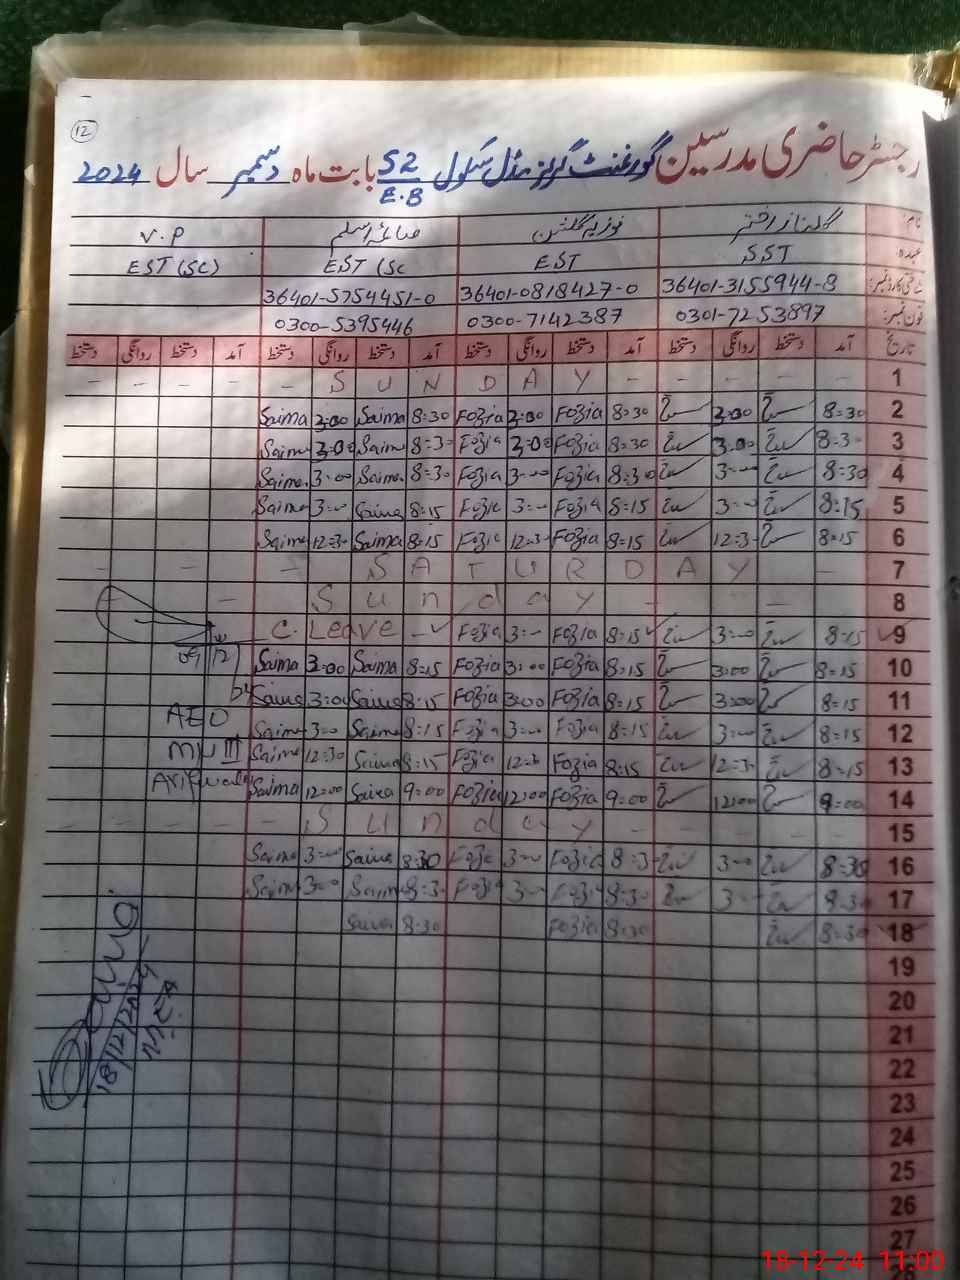 12
رجسٹر حاضری مدرسین گورنمنٹ گرلز مڈل سکول 52 E.B بابت ماہ دسمبر سال 2024
نام: گلناز اختر فوزیہ گلشن صائمہ اسلم V.P
عہدہ: SST EST EST (SC EST (SC)
شناختی کارڈ نمبر: 36401-3155944-8 36401-0818427-0 36401-5754451-0
فون نمبر: 0301-7253897 0300-7142387 0300-5395446
تاریخ آمد دستخط روانگی دستخط آمد دستخط روانگی دستخط آمد دستخط روانگی دستخط آمد دستخط روانگی دستخط
1 - - - - S U N D A Y - - - -
2 8:30 3:00 8:30 Fozia 3:00 Fozia 8:30 Saima 3:00 Saima
3 8:30 3:00 8:30 Fozia 3:00 Fozia 8:30 Saima 3:00 Saima
4 8:30 3:00 8:30 Fozia 3:00 Fozia 8:30 Saima 3:00 Saima
5 8:15 3:00 8:15 Fozia 3:00 Fozia 8:15 Saima 3:00 Saima
6 8:15 12:30 8:15 Fozia 12:30 Fozia 8:15 Saima 12:30 Saima
7 - - - - S A T U R D A Y -
8 - - S u n d a y - -
9 8:15 3:00 8:15 Fozia 3:00 Fozia C. Leave
10 8:15 3:00 8:15 Fozia 3:00 Fozia 8:15 Saima 3:00 Saima
11 8:15 3:00 8:15 Fozia 3:00 Fozia 8:15 Saima 3:00 Saima
12 8:15 3:00 8:15 Fozia 3:00 Fozia 8:15 Saima 3:00 Saima
13 8:15 12:30 8:15 Fozia 12:30 Fozia 8:15 Saima 12:30 Saima
14 9:00 12:00 9:00 Fozia 12:00 Fozia 9:00 Saima 12:00 Saima
15 - - - - S u n d a y - - - -
16 8:30 3:00 8:30 Fozia 3:00 Fozia 8:30 Saima 3:00 Saima
17 8:30 3:00 8:30 Fozia 3:00 Fozia 8:30 Saima 3:00 Saima
18 8:30 8:30 Fozia 8:30 Saima
19
20
21
22
23
24
25
26
27
09/12
AEO
M III
Arifwala
18/12/2024
MEA
18-12-24 11:00